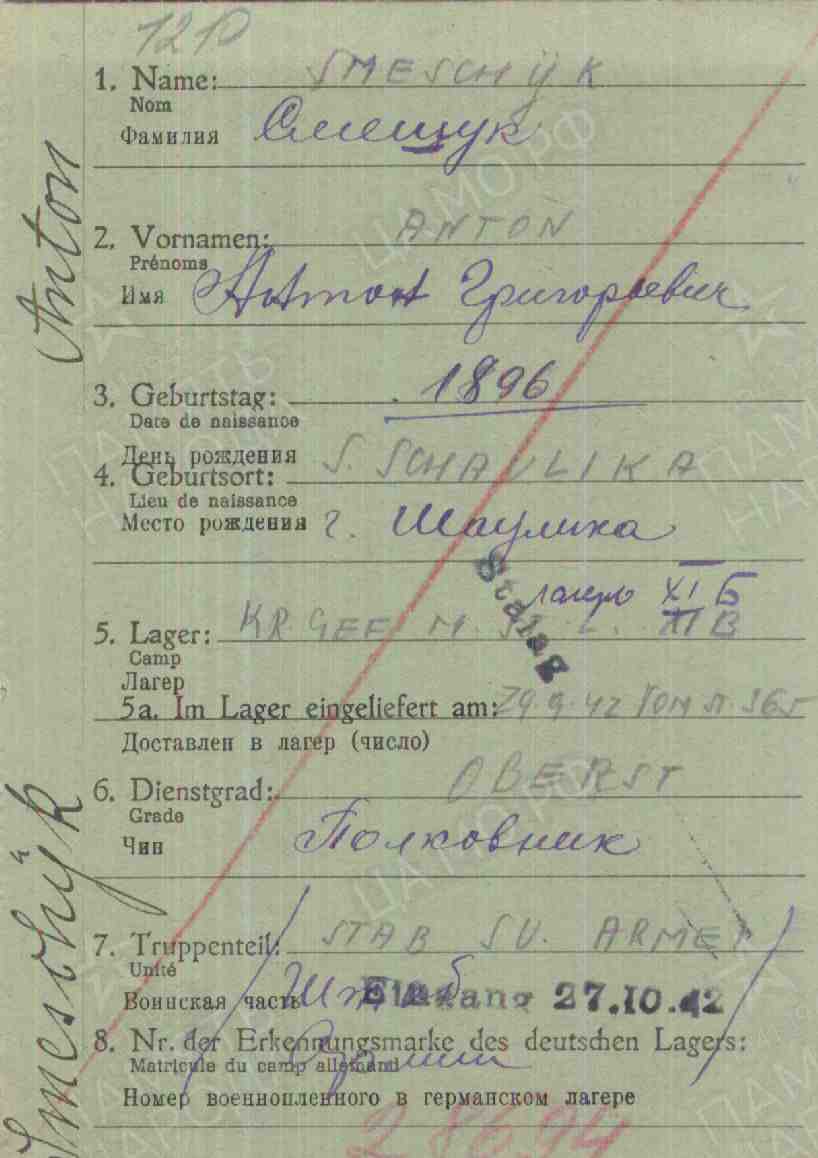 121)
1. Name: SMESCHÿK
Nom
Фамилия Смещук
2. Vornamen: ANTON
Prénoms
Имя Антон Григорьевич
3. Geburtstag: 1896
Date de naissance
День рождения
4. Geburtsort: S. SCHAULIKA
Lieu de naissance
Место рождения г. Шаулика
Stalag
лагерь XI Б
5. Lager: KR. GEF. M. XI B
Camp
Лагер
5a. Im Lager eingeliefert am: 29.9.42 VOM 365
Доставлен в лагер (число)
6. Dienstgrad: OBERST
Grade
Чин Полковник
7. Truppenteil: STAB ARMEI
Unité
Воинская часть Штаб
Eingang 27.10.42
8. Nr. der Erkennungsmarke des deutschen Lagers:
Matricule du camp allemand
Армии
Номер военнопленного в германском лагере
28694
Smeschÿk Anton
ЦАМО РФ
ПАМЯТЬ
НАРОДА